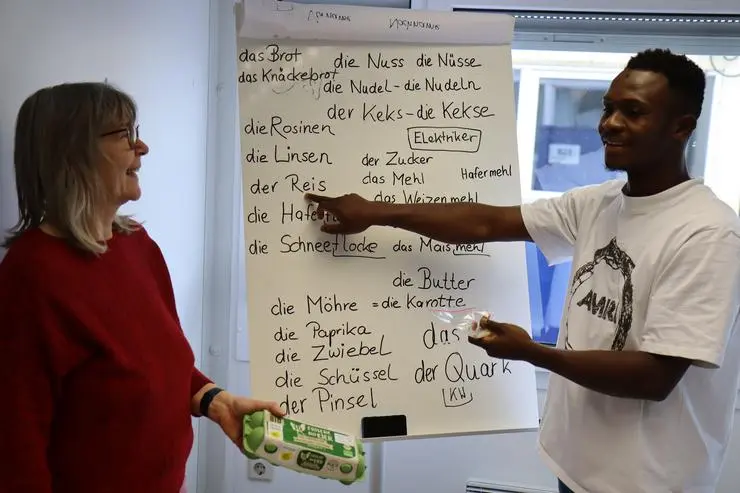 das Brot die Nuss die Nüsse
das Knäckebrot die Nudel - die Nudeln
der Keks - die Kekse
die Rosinen
Elektriker
die Linsen der Zucker
der Reis das Mehl Hafermehl
das Weizenmehl
die
die Schneeflocke das Maismehl
die Butter
die Möhre = die Karotte
die Paprika
das
die Zwiebel
die Schüssel der Quark
KW
der Pinsel